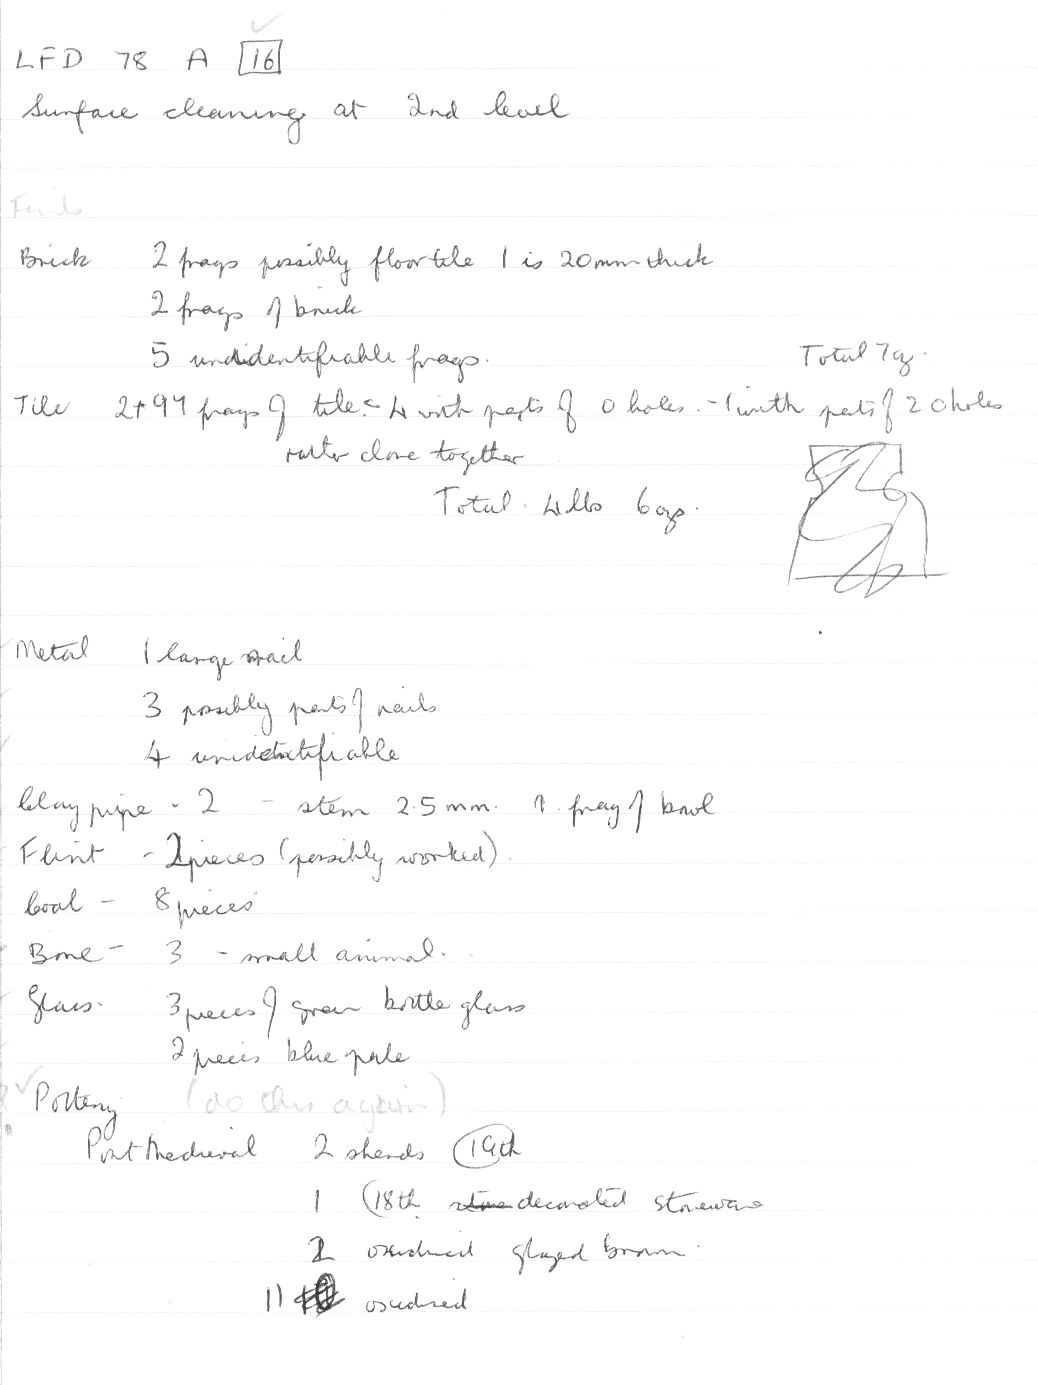 LFD 78 A 16
Surface cleaning at 2nd level
Finds
Brick 2 frags possibly floor tile 1 is 20mm thick
2 frags of brick
5 undidentifiable frags.
Total 7oz.
Tile 2+94 frags of tile - 4 with parts of O holes. - 1 with parts of 2 O holes
rather close together
Total. 4 lbs 6 ozs.
Metal 1 large nail
3 possibly parts of nails
4 unidentifiable
Clay pipe - 2 - stem 2.5 mm. 1. frag of bowl
Flint - 2 pieces (possibly worked).
Coal - 8 pieces
Bone - 3 - small animal.
Glass. 3 pieces of green bottle glass
2 pieces blue pale
Pottery (do this again)
Post Medieval 2 sherds 19th
1 (18th decorated stoneware
2 oxidised glazed brown.
11 oxidised